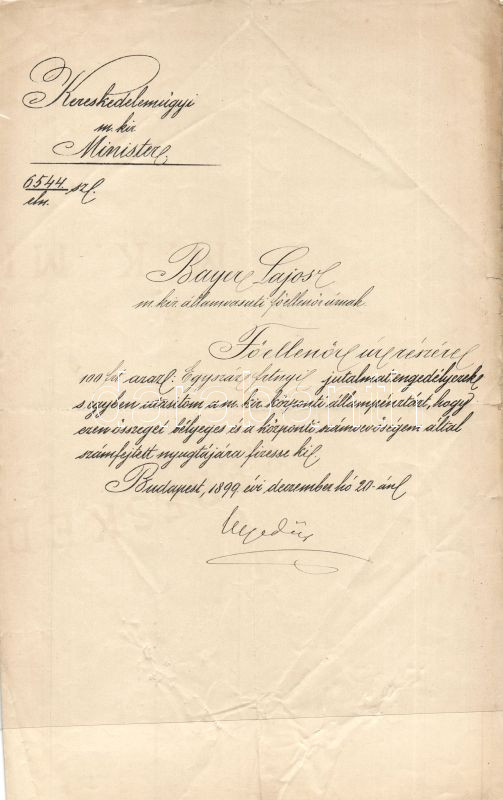 Kereskedelemügyi
m. kir.
Minister.
6544 szl.
eln.
Bayer Lajos
m. kir. államvasuti főellenőr úrnak.
Főellenőr úr részére
100 frt azaz: Egyszáz frtnyi jutalmat engedélyezek
s egyben utasitom a m. kir. központi állampénztárt, hogy
ezen összeget bélyeges és a központi számvevőségem által
számfejtett nyugtájára fizesse ki.
Budapest, 1899 évi deczember hó 20-án
Hegedüs